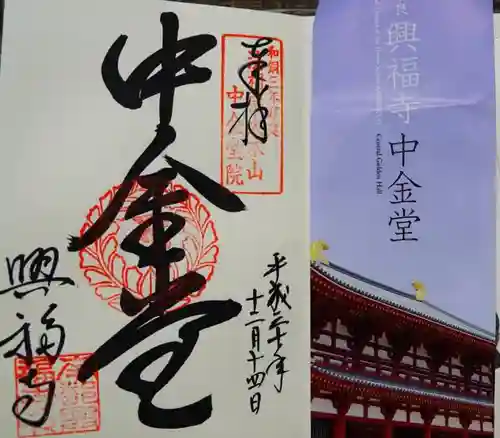 奉拝
和銅三年創建
中金堂院
中金堂
平成三十年
十二月十四日
興福寺
良
興福寺
中金堂
Central Golden Hall